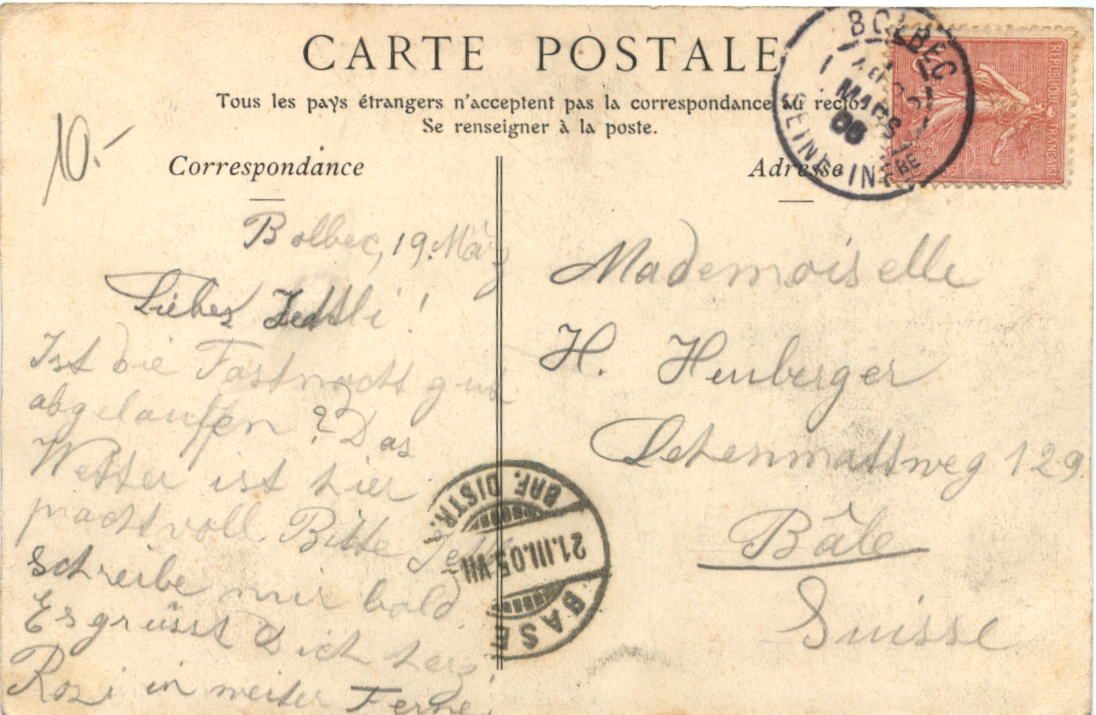 CARTE POSTALE
Tous les pays étrangers n'acceptent pas la correspondance au recto
Se renseigner à la poste.
Correspondance
Adresse
10.-
Bolbec, 19. März
Liebes !
Ist die Fastnacht gut
abgelauffen? Das
Wetter ist hier
prachtvoll. Bitte
schreibe mir bald.
Es grüsst Dich herz
Rosi in weiter Ferne.
Mademoiselle
H. Heuberger
Lehenmattweg 129.
Bâle
Suisse
BOLBEC
MARS
05
SEINE-INFRE
REPUBLIQUE FRANÇAISE
BASEL
21.III.05.VII
BRF. DISTR.